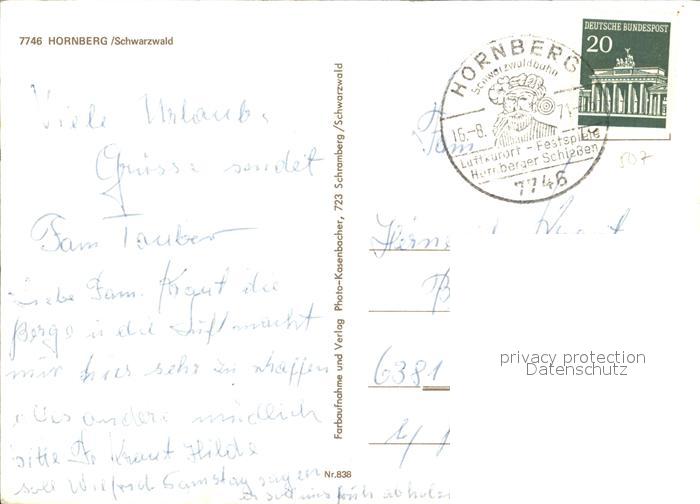 7746 HORNBERG /Schwarzwald
Viele Urlaubs
Grüsse sendet
Fam Tauber
Liebe Fam. Kraut die
Berge u die Luft macht
mir hier sehr zu schaffen
alles andere mündlich
bitte Fr Kraut Hilde
soll Wilfried Samstag sagen
er soll uns früh abholen
Farbaufnahme und Verlag Photo-Kasenbacher, 723 Schramberg/Schwarzwald
Nr.838
HORNBERG
Schwarzwaldbahn
16.-8. 71
Luftkurort - Festspiele
Hornberger Schießen
7746
DEUTSCHE BUNDESPOST
20
507
Fam
6381
privacy protection
Datenschutz